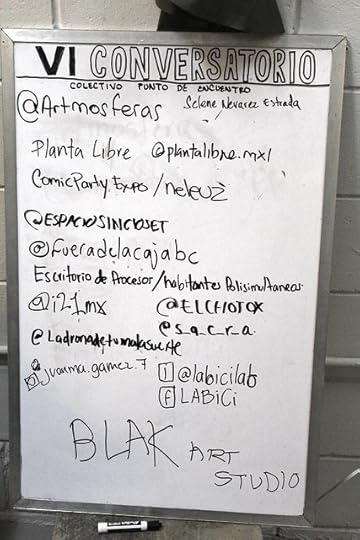 VI CONVERSATORIO
COLECTIVO PUNTO DE ENCUENTRO
@Artmosferas Selene Nevarez Estrada
Planta Libre @plantalibre.mxl
ComicParty Expo / neleuz
@ESPACIOSINCLOSET
@fueradelacajabc
Escritorio de Procesos/habitantes Polisimultaneas
@i21_mx @ELCHOTOX
@s_a_c_r_a_
@Ladronadetumalasuerte
juanma.gamez.7 @labicilab
f LABiCi
BLAK ART
STUDIO